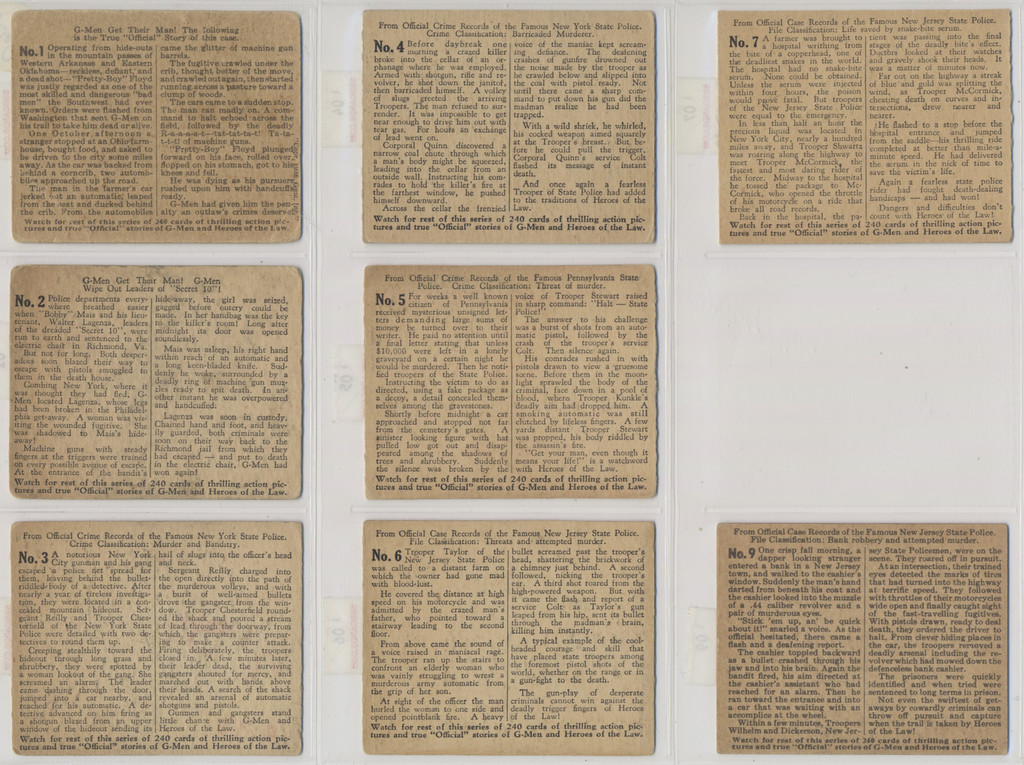 G-Men Get Their Man! The following
is the True "Official" Story of this case.
No.1 Operating from hide-outs
in the mountain passes of
Western Arkansas and Eastern
Oklahoma—reckless, defiant, and
a dead shot—"Pretty-Boy" Floyd
was justly regarded as one of the
most skilled and dangerous "bad
men" the Southwest had ever
known. Orders were flashed from
Washington that sent G-Men on
his trail to take him dead or alive.
One October afternoon a
stranger stopped at an Ohio farm-
house, bought food, and asked to
be driven to the city some miles
away. As the car was backed from
behind a corncrib, two automob-
biles approached up the road.
The man in the farmer's car
jerked out an automatic, leaped
from the seat and darted behind
the crib. From the automobiles
came the glitter of machine gun
barrels.
The fugitive crawled under the
crib, thought better of the move,
and crawled out again, then started
running across a pasture toward a
clump of woods.
The cars came to a sudden stop.
The man ran madly on. A com-
mand to halt echoed across the
field, followed by the deadly
of machine guns.
"Pretty-Boy" Floyd plunged
forward on his face, rolled over,
flopped on his stomach, got to his
knees and fell.
He was dying as his pursuers
rushed upon him with handcuffs
ready.
G-Men had given him the pen-
alty an outlaw's crimes deserve
Watch for rest of this series of 240 cards of thrilling action pic-
tures and true "Official" stories of G-Men and Heroes of the Law.
G-Men Get Their Man! G-Men
Wipe Out Leaders of "Secret 10"!
No.2 Police departments every-
where breathed easier
when "Bobby" Mais and his lieu-
tenant, Walter Lagenza, leaders
of the dreaded "Secret 10", were
run to earth and sentenced to the
electric chair in Richmond, Va.
But not for long. Both desper-
adoes soon blazed their way to
escape with pistols smuggled to
them in the death house.
Combing New York, where it
was thought they had fled, G-
Men located Lagenza, whose legs
had been broken in the Philadel-
phia get-away. A woman was vis-
iting the wounded fugitive. She
was shadowed to Mais's hide-
away!
Machine guns with steady
fingers at the triggers were trained
on every possible avenue of escape.
At the entrance of the bandit's
hide-away, the girl was seized,
gagged before outcry could be
made. In her handbag was the key
to the killer's room! Long after
midnight its door was opened
soundlessly.
Mais was asleep, his right hand
within reach of an automatic and
a long keen-bladed knife. Sud-
denly he woke, surrounded by a
deadly ring of machine gun muz-
zles ready to spit death. In an-
other instant he was overpowered
and handcuffed.
Lagenza was soon in custody.
Chained hand and foot, and heav-
ily guarded, both criminals were
soon on their way back to the
Richmond jail from which they
had escaped — and put to death
in the electric chair, G-Men had
won again!
Watch for rest of this series of 240 cards of thrilling action pic-
tures and true "Official" stories of G-Men and Heroes of the Law.
From Official Crime Records of the Famous New York State Police.
Crime Classification: Murder and Banditry.
No.3 A notorious New York
City gunman and his gang
escaped a police net spread for
them, leaving behind the bullet-
riddled body of a detective. After
nearly a year of tireless investiga-
tion, they were located in a con-
cealed mountain hideout. Ser-
geant Reilly and Trooper Ches-
terfield of the New York State
Police were detailed with two de-
tectives to round them up.
Creeping stealthily toward the
hideout through long grass and
shrubbery, they were spotted by
a woman lookout of the gang. She
screamed an alarm. The leader
came dashing through the door,
jumped into a car nearby, and
reached for his automatic. A de-
tective advanced on him firing as
a shotgun blazed from an upper
window of the hideout sending its
hail of slugs into the officer's head
and neck.
Sergeant Reilly charged into
the open directly into the path of
the murderous volleys, and with
a burst of well-aimed bullets
drove the gangster from the win-
dow. Trooper Chesterfield round-
ed the shack and poured a stream
of lead through the doorway, from
which the gangsters were prepar-
ing to make a counter attack.
Firing deliberately, the troopers
closed in. A few minutes later,
their leader dead, the surviving
gangsters shouted for mercy, and
marched out with hands above
their heads. A search of the shack
revealed an arsenal of automatic
shotguns and pistols.
Gunmen and gangsters stand
little chance with G-Men and
Heroes of the Law.
Watch for rest of this series of 240 cards of thrilling action pic-
tures and true "Official" stories of G-Men and Heroes of the Law.
From Official Crime Records of the Famous New York State Police.
Crime Classification: Barricaded Murderer.
No.4 Before daybreak one
morning a crazed killer
broke into the cellar of an or-
phanage where he was employed.
Armed with shotgun, rifle and re-
volver, he shot down the janitor,
then barricaded himself. A volley
of slugs greeted the arriving
Troopers. The man refused to sur-
render. It was impossible to get
near enough to drive him out with
tear gas. For hours an exchange
of lead went on.
Corporal Quinn discovered a
narrow coal chute through which
a man's body might be squeezed,
leading into the cellar from an
outside wall. Instructing his com-
rades to hold the killer's fire at
the farthest window, he pushed
himself downward.
Across the cellar the frenzied
voice of the maniac kept scream-
ing defiance. The deafening
crashes of gunfire drowned out
the noise made by the trooper as
he crawled below and slipped into
the coal bin, pistol ready. Not
until there came a sharp com-
mand to put down his gun did the
madman realize he had been
trapped.
With a wild shriek, he whirled,
his cocked weapon aimed squarely
at the Trooper's breast. But, be-
fore he could pull the trigger,
Corporal Quinn's service Colt
flashed its message of instant
death.
And once again a fearless
Trooper of State Police had added
to the traditions of Heroes of the
Law.
Watch for rest of this series of 240 cards of thrilling action pic-
tures and true "Official" stories of G-Men and Heroes of the Law.
From Official Crime Records of the Famous Pennsylvania State
Police. Crime Classification: Threat of murder.
No.5 For weeks a well known
citizen of Pennsylvania
received mysterious unsigned let-
ters demanding large sums of
money be turned over to their
writer. He paid no attention until
a final letter stating that unless
$10,000 were left in a lonely
graveyard on a certain night he
would be murdered. Then he noti-
fied troopers of the State Police.
Instructing the victim to do as
directed, using a fake package as
a decoy, a detail concealed them-
selves among the gravestones.
Shortly before midnight a car
approached and stopped not far
from the cemetery's gates. A
sinister looking figure with hat
pulled low got out and disap-
peared among the shadows of
trees and shrubbery. Suddenly
the silence was broken by the
voice of Trooper Stewart raised
in sharp command: "Halt — State
Police!"
The answer to his challenge
was a burst of shots from an auto-
matic pistol, followed by the
crash of the trooper's service
Colt. Then silence again.
His comrades rushed in with
pistols drawn to view a gruesome
scene. Before them in the moon-
light sprawled the body of the
criminal, face down in a pool of
blood, where Trooper Kunkle's
deadly aim had dropped him. A
smoking automatic was still
clutched by lifeless fingers. A few
yards distant Trooper Stewart
was propped, his body riddled by
the assassin's fire.
"Get your man, even though it
means your life!" is a watchword
with Heroes of the Law.
Watch for rest of this series of 240 cards of thrilling action pic-
tures and true "Official" stories of G-Men and Heroes of the Law.
From Official Case Records of the Famous New Jersey State Police.
File Classification: Threats and attempted murder.
No.6 Trooper Taylor of the
New Jersey State Police
was called to a distant farm on
which the owner had gone mad
with blood-lust.
He covered the distance at high
speed on his motorcycle and was
admitted by the crazed man's
father, who pointed toward a
stairway leading to the second
floor.
From above came the sound of
a voice raised in maniacal rage.
The trooper ran up the stairs to
confront an elderly woman who
was vainly struggling to wrest a
murderous army automatic from
the grip of her son.
At sight of the officer the man
hurled the woman to one side and
opened pointblank fire. A heavy
bullet screamed past the trooper's
head, shattering the brickwork of
a chimney just behind. A second
followed, nicking the trooper's
ear. A third shot roared from the
high-powered weapon. But with
it came the flash and report of a
service Colt as Taylor's gun
leaped from his hip, sent its bullet
through the madman's brain,
killing him instantly.
A typical example of the cool-
headed courage and skill that
have placed state troopers among
the foremost pistol shots of the
world, whether on the range or in
a gun-fight to the death.
The gun-play of desperate
criminals cannot win against the
deadly trigger fingers of Heroes
of the Law!
Watch for rest of this series of 240 cards of thrilling action pic-
tures and true "Official" stories of G-Men and Heroes of the Law.
From Official Case Records of the Famous New Jersey State Police.
File Classification: Life saved by snake-bite serum.
No.7 A farmer was brought to
a hospital writhing from
the bite of a copperhead, one of
the deadliest snakes in the world.
The hospital had no snake-bite
serum. None could be obtained.
Unless the serum were injected
within four hours, the poison
would prove fatal. But troopers
of the New Jersey State Police
were equal to the emergency.
In less than half an hour the
precious liquid was located in
New York City, nearly a hundred
miles away, and Trooper Shwartz
was roaring along the highway to
meet Trooper McCormick, the
fastest and most daring rider of
the force. Midway to the hospital
he tossed the package to Mc-
Cormick, who opened the throttle
of his motorcycle on a ride that
broke all road records.
Back in the hospital, the pa-
tient was passing into the final
stages of the deadly bite's effect.
Doctors looked at their watches
and gravely shook their heads. It
was a matter of minutes now.
Far out on the highway a streak
of blue and gold was splitting the
wind, as Trooper McCormick,
cheating death on curves and in-
tersections, drew nearer and
nearer.
He flashed to a stop before the
hospital entrance and jumped
from the saddle—his thrilling ride
completed at better than mile-a-
minute speed. He had delivered
the serum in the nick of time to
save the victim's life.
Again a fearless state police
rider had fought death-dealing
handicaps — and had won!
Dangers and difficulties don't
count with Heroes of the Law!
Watch for rest of this series of 240 cards of thrilling action pic-
tures and true "Official" stories of G-Men and Heroes of the Law.
From Official Case Records of the Famous New Jersey State Police.
File Classification: Bank robbery and attempted murder.
No.9 One crisp fall morning, a
dapper looking stranger
entered a bank in a New Jersey
town, and walked to the cashier's
window. Suddenly the man's hand
darted from beneath his coat and
the cashier looked into the muzzle
of a .44 caliber revolver and a
pair of murderous eyes.
"Stick 'em up, an' be quick
about it!" snarled a voice. As the
official hesitated, there came a
flash and a deafening report.
The cashier toppled backward
as a bullet crashed through his
jaw and into his brain. Again the
bandit fired, his aim directed at
the cashier's assistant who had
reached for an alarm. Then he
ran toward the entrance and into
a car that was waiting with an
accomplice at the wheel.
Within a few minutes, Troopers
Wilhelm and Dickerson, New Jer-
sey State Policemen, were on the
scene. They roared off in pursuit.
At an intersection, their trained
eyes detected the marks of tires
that had turned into the highway
at terrific speed. They followed
with throttles of their motorcycles
wide open and finally caught sight
of the fast-travelling fugitives.
With pistols drawn, ready to deal
death, they ordered the driver to
halt. From clever hiding places in
the car, the troopers removed a
deadly arsenal including the re-
volver which had mowed down the
defenceless bank cashier.
The prisoners were quickly
identified and when tried were
sentenced to long terms in prison.
Not even the swiftest of get-
aways by cowardly criminals can
throw off pursuit and capture
when the trail is taken by Heroes
of the Law!
Watch for rest of this series of 240 cards of thrilling action pic-
tures and true "Official" stories of G-Men and Heroes of the Law.